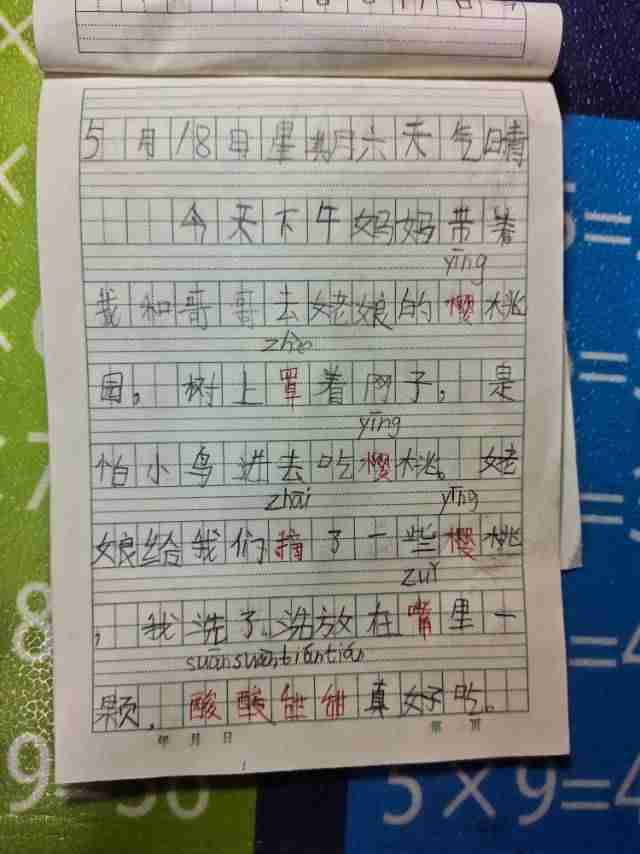 5月18日星期六天气晴
今天下午妈妈带着
yīng
我和哥哥去姥娘的樱桃
zhào
园，树上罩着网子，是
yīng
怕小鸟进去吃樱桃。姥
zhāi yīng
娘给我们摘了一些樱桃
zuǐ
，我洗了洗放在嘴里一
suānsuāntiántián
颗，酸酸甜甜真好吃。
年 月 日 第 页
5×9=4